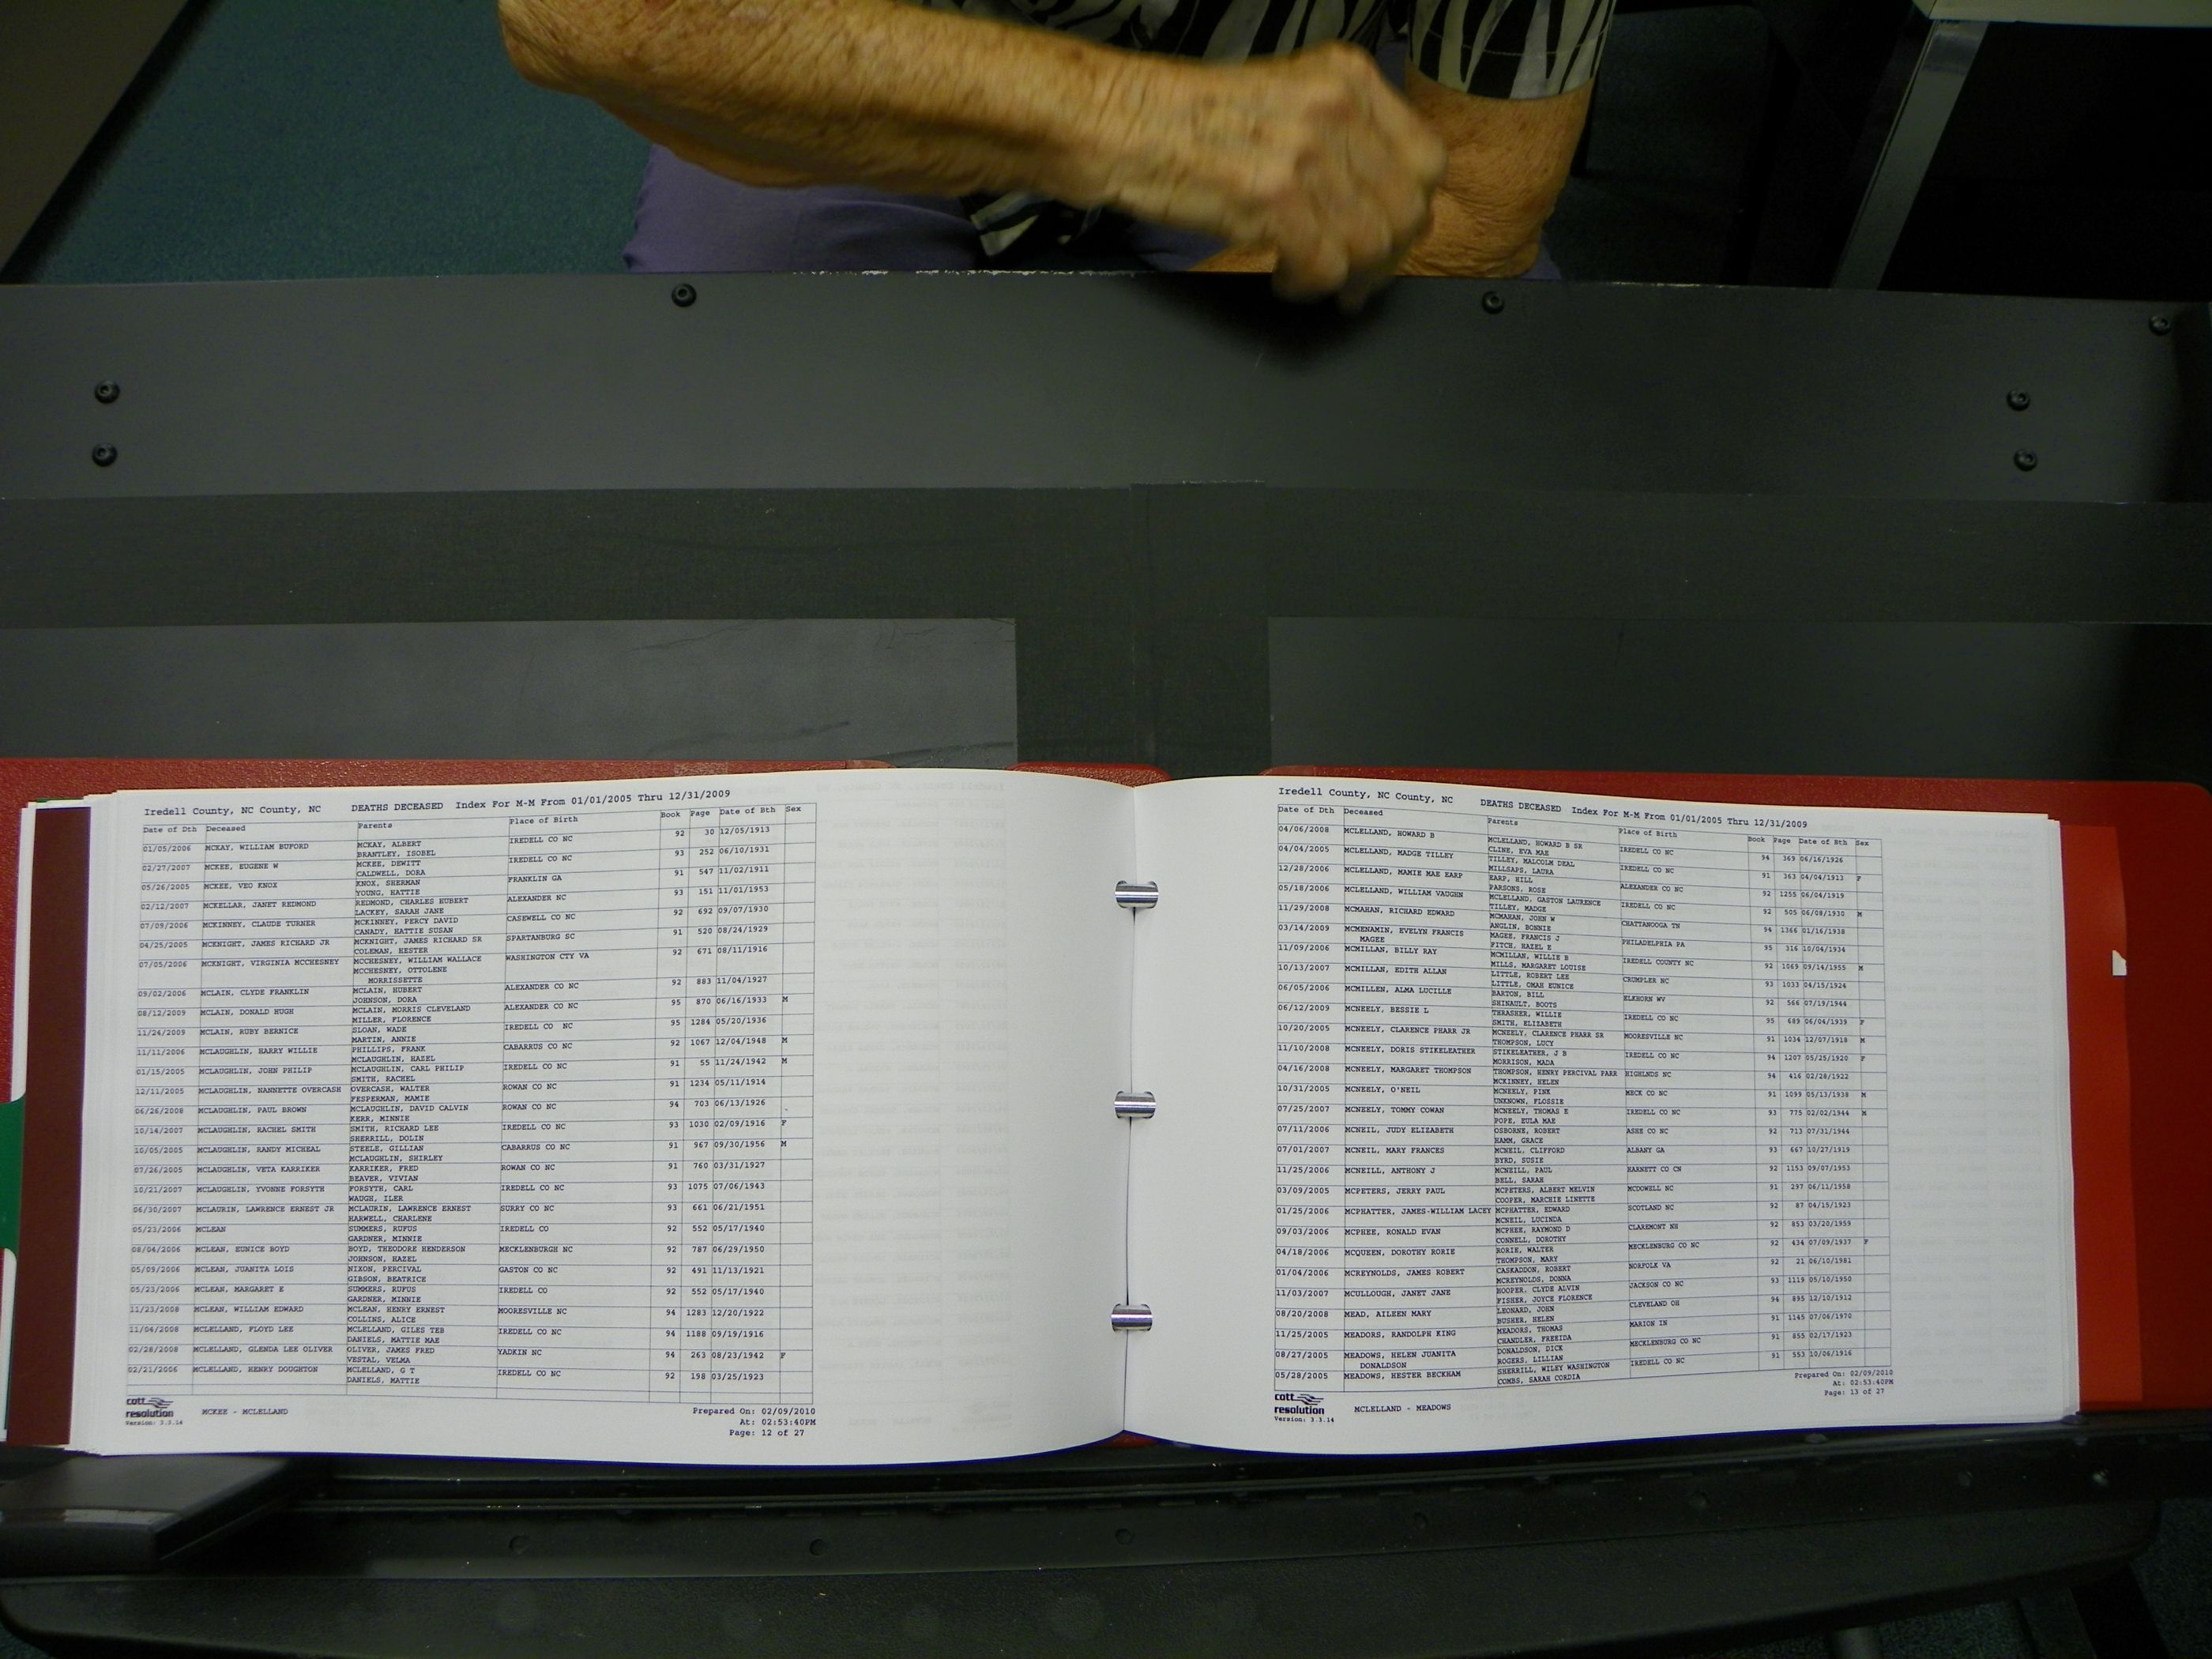 Iredell County, NC County, NC DEATHS DECEASED Index For M-M From 01/01/2005 Thru 12/31/2009
Date of Dth Deceased Parents Place of Birth Book Page Date of Bth Sex
01/05/2006 MCKAY, WILLIAM BUFORD MCKAY, ALBERT IREDELL CO NC 92 30 12/05/1913
BRANTLEY, ISOBEL
02/27/2007 MCKEE, EUGENE W MCKEE, DEWITT IREDELL CO NC 93 252 06/10/1931
CALDWELL, DORA
05/26/2005 MCKEE, VEO KNOX KNOX, SHERMAN FRANKLIN GA 91 547 11/02/1911
YOUNG, HATTIE
02/12/2007 MCKELLAR, JANET REDMOND REDMOND, CHARLES HUBERT ALEXANDER NC 93 151 11/01/1953
LACKEY, SARAH JANE
07/09/2006 MCKINNEY, CLAUDE TURNER MCKINNEY, PERCY DAVID CASEWELL CO NC 92 692 09/07/1930
CANADY, HATTIE SUSAN
04/25/2005 MCKNIGHT, JAMES RICHARD JR MCKNIGHT, JAMES RICHARD SR SPARTANBURG SC 91 520 08/24/1929
COLEMAN, HESTER
07/05/2006 MCKNIGHT, VIRGINIA MCCHESNEY MCCHESNEY, WILLIAM WALLACE WASHINGTON CTY VA 92 671 08/11/1916
MCCHESNEY, OTTOLENE
MORRISSETTE
09/02/2006 MCLAIN, CLYDE FRANKLIN MCLAIN, HUBERT ALEXANDER CO NC 92 883 11/04/1927
JOHNSON, DORA
08/12/2009 MCLAIN, DONALD HUGH MCLAIN, MORRIS CLEVELAND ALEXANDER CO NC 95 870 06/16/1933 M
MILLER, FLORENCE
11/24/2009 MCLAIN, RUBY BERNICE SLOAN, WADE IREDELL CO NC 95 1284 05/20/1936
MARTIN, ANNIE
11/11/2006 MCLAUGHLIN, HARRY WILLIE PHILLIPS, FRANK CABARRUS CO NC 92 1067 12/04/1948 M
MCLAUGHLIN, HAZEL
01/15/2005 MCLAUGHLIN, JOHN PHILIP MCLAUGHLIN, CARL PHILIP IREDELL CO NC 91 55 11/24/1942 M
SMITH, RACHEL
12/11/2005 MCLAUGHLIN, NANNETTE OVERCASH OVERCASH, WALTER ROWAN CO NC 91 1234 05/11/1914
FESPERMAN, MAMIE
06/26/2008 MCLAUGHLIN, PAUL BROWN MCLAUGHLIN, DAVID CALVIN ROWAN CO NC 94 703 06/13/1926
KERR, MINNIE
10/14/2007 MCLAUGHLIN, RACHEL SMITH SMITH, RICHARD LEE IREDELL CO NC 93 1030 02/09/1916 F
SHERRILL, DOLIN
10/05/2005 MCLAUGHLIN, RANDY MICHEAL STEELE, GILLIAN CABARRUS CO NC 91 967 09/30/1956 M
MCLAUGHLIN, SHIRLEY
07/26/2005 MCLAUGHLIN, VETA KARRIKER KARRIKER, FRED ROWAN CO NC 91 760 03/31/1927
BEAVER, VIVIAN
10/21/2007 MCLAUGHLIN, YVONNE FORSYTH FORSYTH, CARL IREDELL CO NC 93 1075 07/06/1943
WAUGH, ILER
06/30/2007 MCLAURIN, LAWRENCE ERNEST JR MCLAURIN, LAWRENCE ERNEST SURRY CO NC 93 661 06/21/1951
HARWELL, CHARLENE
05/23/2006 MCLEAN SUMMERS, RUFUS IREDELL CO 92 552 05/17/1940
GARDNER, MINNIE
08/04/2006 MCLEAN, EUNICE BOYD BOYD, THEODORE HENDERSON MECKLENBURGH NC 92 787 06/29/1950
JOHNSON, HAZEL
05/09/2006 MCLEAN, JUANITA LOIS NIXON, PERCIVAL GASTON CO NC 92 491 11/13/1921
GIBSON, BEATRICE
05/23/2006 MCLEAN, MARGARET E SUMMERS, RUFUS IREDELL CO 92 552 05/17/1940
GARDNER, MINNIE
11/23/2008 MCLEAN, WILLIAM EDWARD MCLEAN, HENRY ERNEST MOORESVILLE NC 94 1283 12/20/1922
COLLINS, ALICE
11/04/2008 MCLELLAND, FLOYD LEE MCLELLAND, GILES TEB IREDELL CO NC 94 1188 09/19/1916
DANIELS, MATTIE MAE
02/28/2008 MCLELLAND, GLENDA LEE OLIVER OLIVER, JAMES FRED YADKIN NC 94 263 08/23/1942 F
VESTAL, VELMA
02/21/2006 MCLELLAND, HENRY DOUGHTON MCLELLAND, G T IREDELL CO NC 92 198 03/25/1923
DANIELS, MATTIE
cott
resolution
Version: 3.3.14
MCKEE - MCLELLAND
Prepared On: 02/09/2010
At: 02:53:40PM
Page: 12 of 27
Iredell County, NC County, NC DEATHS DECEASED Index For M-M From 01/01/2005 Thru 12/31/2009
Date of Dth Deceased Parents Place of Birth Book Page Date of Bth Sex
04/06/2008 MCLELLAND, HOWARD B MCLELLAND, HOWARD B SR IREDELL CO NC 94 369 06/16/1926
CLINE, EVA MAE
04/04/2005 MCLELLAND, MADGE TILLEY TILLEY, MALCOLM DEAL IREDELL CO NC 91 363 04/04/1913 F
MILLSAPS, LAURA
12/28/2006 MCLELLAND, MAMIE MAE EARP EARP, HILL ALEXANDER CO NC 92 1255 06/04/1919
PARSONS, ROSE
05/18/2006 MCLELLAND, WILLIAM VAUGHN MCLELLAND, GASTON LAURENCE IREDELL CO NC 92 505 06/08/1930 M
TILLEY, MADGE
11/29/2008 MCMAHAN, RICHARD EDWARD MCMAHAN, JOHN W CHATTANOOGA TN 94 1366 01/16/1938
ANGLIN, BONNIE
03/14/2009 MCMENAMIN, EVELYN FRANCIS MAGEE, FRANCIS J PHILADELPHIA PA 95 316 10/04/1934
MAGEE FITCH, HAZEL E
11/09/2006 MCMILLAN, BILLY RAY MCMILLAN, WILLIE B IREDELL COUNTY NC 92 1069 09/14/1955 M
MILLS, MARGARET LOUISE
10/13/2007 MCMILLAN, EDITH ALLAN LITTLE, ROBERT LEE CRUMPLER NC 93 1033 04/15/1924
LITTLE, OMAR EUNICE
06/05/2006 MCMILLEN, ALMA LUCILLE BARTON, BILL ELKHORN WV 92 566 07/19/1944
SHINAULT, BOOTS
06/12/2009 MCNEELY, BESSIE L THRASHER, WILLIE IREDELL CO NC 95 689 06/04/1939 F
SMITH, ELIZABETH
10/20/2005 MCNEELY, CLARENCE PHARR JR MCNEELY, CLARENCE PHARR SR MOORESVILLE NC 91 1034 12/07/1918 M
THOMPSON, LUCY
11/10/2008 MCNEELY, DORIS STIKELEATHER STIKELEATHER, J B IREDELL CO NC 94 1207 05/25/1920 F
MORRISON, MADA
04/16/2008 MCNEELY, MARGARET THOMPSON THOMPSON, HENRY PERCIVAL PARK HIGHLNDS NC 94 416 02/28/1922
MCKINNEY, HELEN
10/31/2005 MCNEELY, O'NEIL MCNEELY, PINK MECK CO NC 91 1099 05/13/1938 M
UNKNOWN, FLOSSIE
07/25/2007 MCNEELY, TOMMY COWAN MCNEELY, THOMAS E IREDELL CO NC 93 775 02/02/1944 M
POPE, EULA MAE
07/11/2006 MCNEIL, JUDY ELIZABETH OSBORNE, ROBERT ASHE CO NC 92 713 07/31/1944
HAMM, GRACE
07/01/2007 MCNEIL, MARY FRANCES MCNEIL, CLIFFORD ALBANY GA 93 667 10/27/1919
BYRD, SUSIE
11/25/2006 MCNEILL, ANTHONY J MCNEILL, PAUL HARNETT CO CN 92 1153 09/07/1953
BELL, SARAH
03/09/2005 MCPETERS, JERRY PAUL MCPETERS, ALBERT MELVIN MCDOWELL NC 91 297 06/11/1958
COOPER, MARCHIE LINETTE
01/25/2006 MCPHATTER, JAMES-WILLIAM LACEY MCPHATTER, EDWARD SCOTLAND NC 92 87 04/15/1923
MCNEIL, LUCINDA
09/03/2006 MCPHEE, RONALD EVAN MCPHEE, RAYMOND D CLAREMONT NH 92 853 03/20/1959
CONNELL, DOROTHY
04/18/2006 MCQUEEN, DOROTHY RORIE RORIE, WALTER MECKLENBURG CO NC 92 434 07/09/1937 F
THOMPSON, MARY
01/04/2006 MCREYNOLDS, JAMES ROBERT CASKADDON, ROBERT NORFOLK VA 92 21 06/10/1981
MCREYNOLDS, DONNA
11/03/2007 MCULLOUGH, JANET JANE HOOPER, CLYDE ALVIN JACKSON CO NC 93 1119 05/10/1950
FISHER, JOYCE FLORENCE
08/20/2008 MEAD, AILEEN MARY LEONARD, JOHN CLEVELAND OH 94 895 12/10/1912
BUSHER, HELEN
11/25/2005 MEADORS, RANDOLPH KING MEADORS, THOMAS MARION IN 91 1145 07/06/1970
CHANDLER, FREEIDA
08/27/2005 MEADOWS, HELEN JUANITA DONALDSON, DICK MECKLENBURG CO NC 91 855 02/17/1923
DONALDSON ROGERS, LILLIAN
05/28/2005 MEADOWS, HESTER BECKHAM SHERRILL, WILEY WASHINGTON IREDELL CO NC 91 553 10/06/1916
COMBS, SARAH CORDIA
cott
resolution
Version: 3.3.14
MCLELLAND - MEADOWS
Prepared On: 02/09/2010
At: 02:53:40PM
Page: 13 of 27